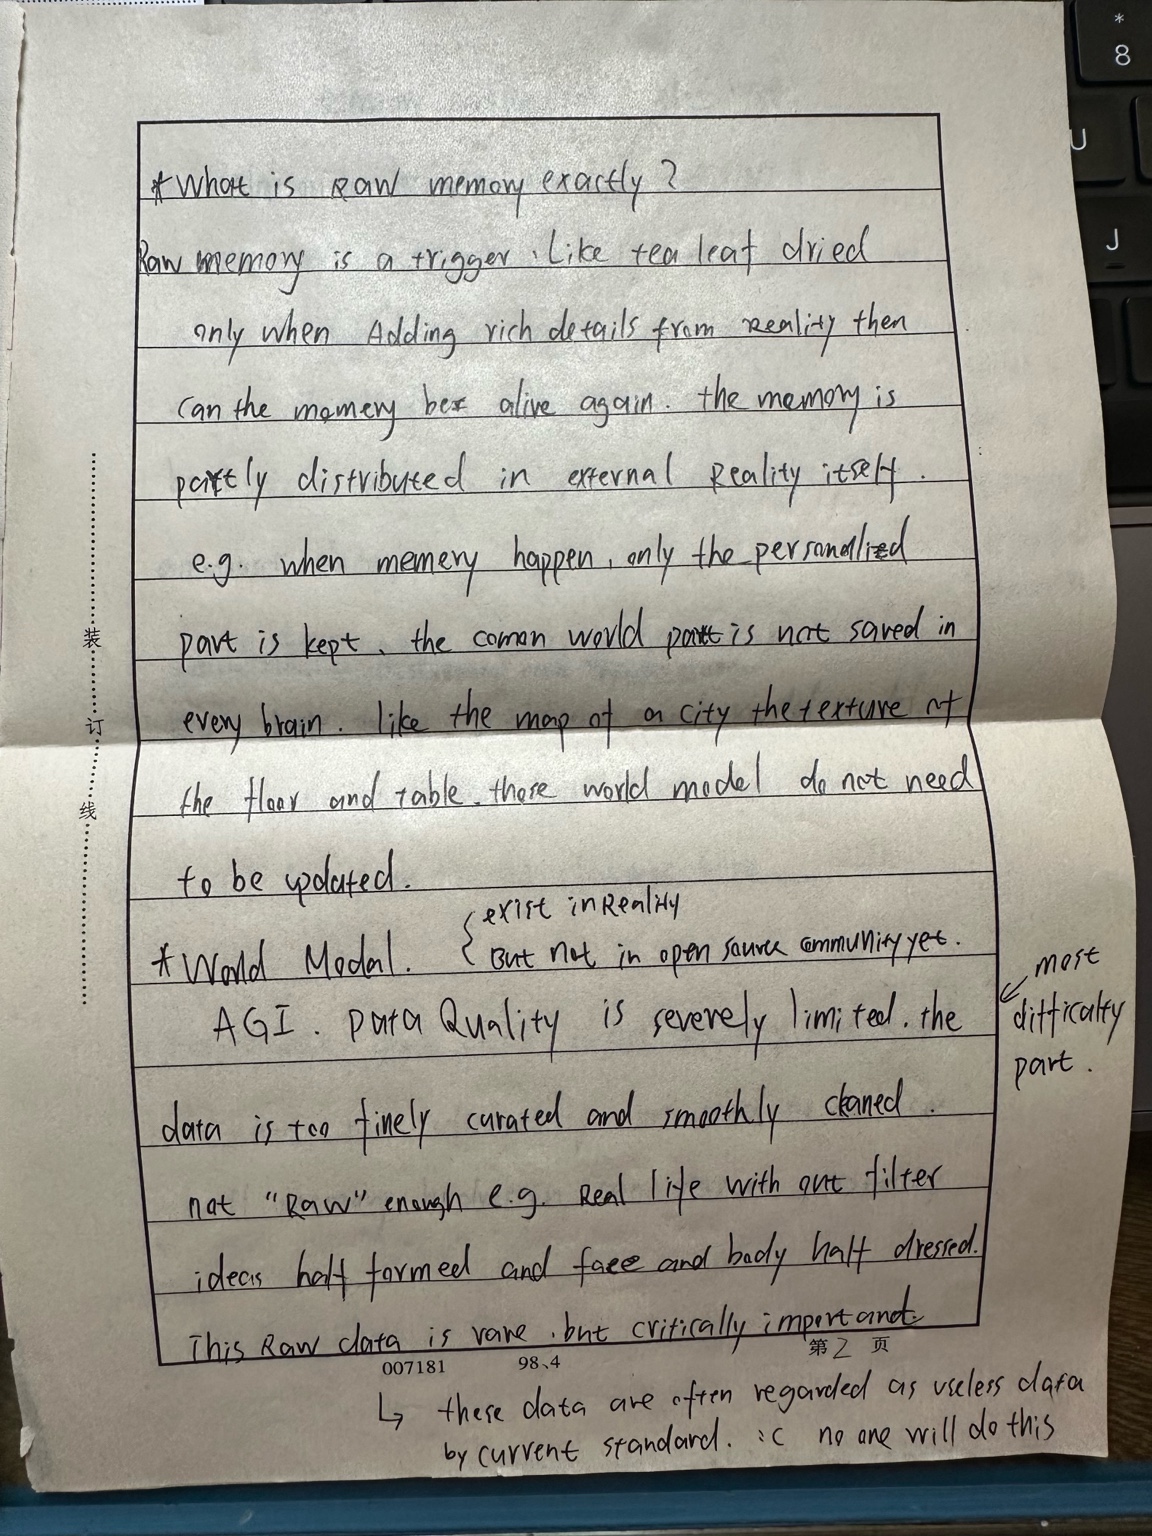 *
8
U
J
*What is Raw memory exactly?
Raw memory is a trigger. Like tea leaf dried
only when Adding rich details from reality then
can the memery be alive again. the memory is
partly distributed in external Reality itself.
e.g. when memery happen, only the personalized
part is kept. the comon world part is not saved in
every brain. like the map of a city the texture of
the floor and table. those world model do not need
to be updated.
exist in Reality
*World Modal. But not in open source community yet.
AGI. Data Quality is severely limited. the
most
difficalty
part.
data is too finely curated and smoothly cleaned.
not "Raw" enough e.g. Real life with out filter
ideas half formed and face and body half dressed.
This Raw data is rare. but critically important.
第2页
007181 98、4
↳ these data are often regarded as useless data
by current standard. :C no one will do this
装
订
线